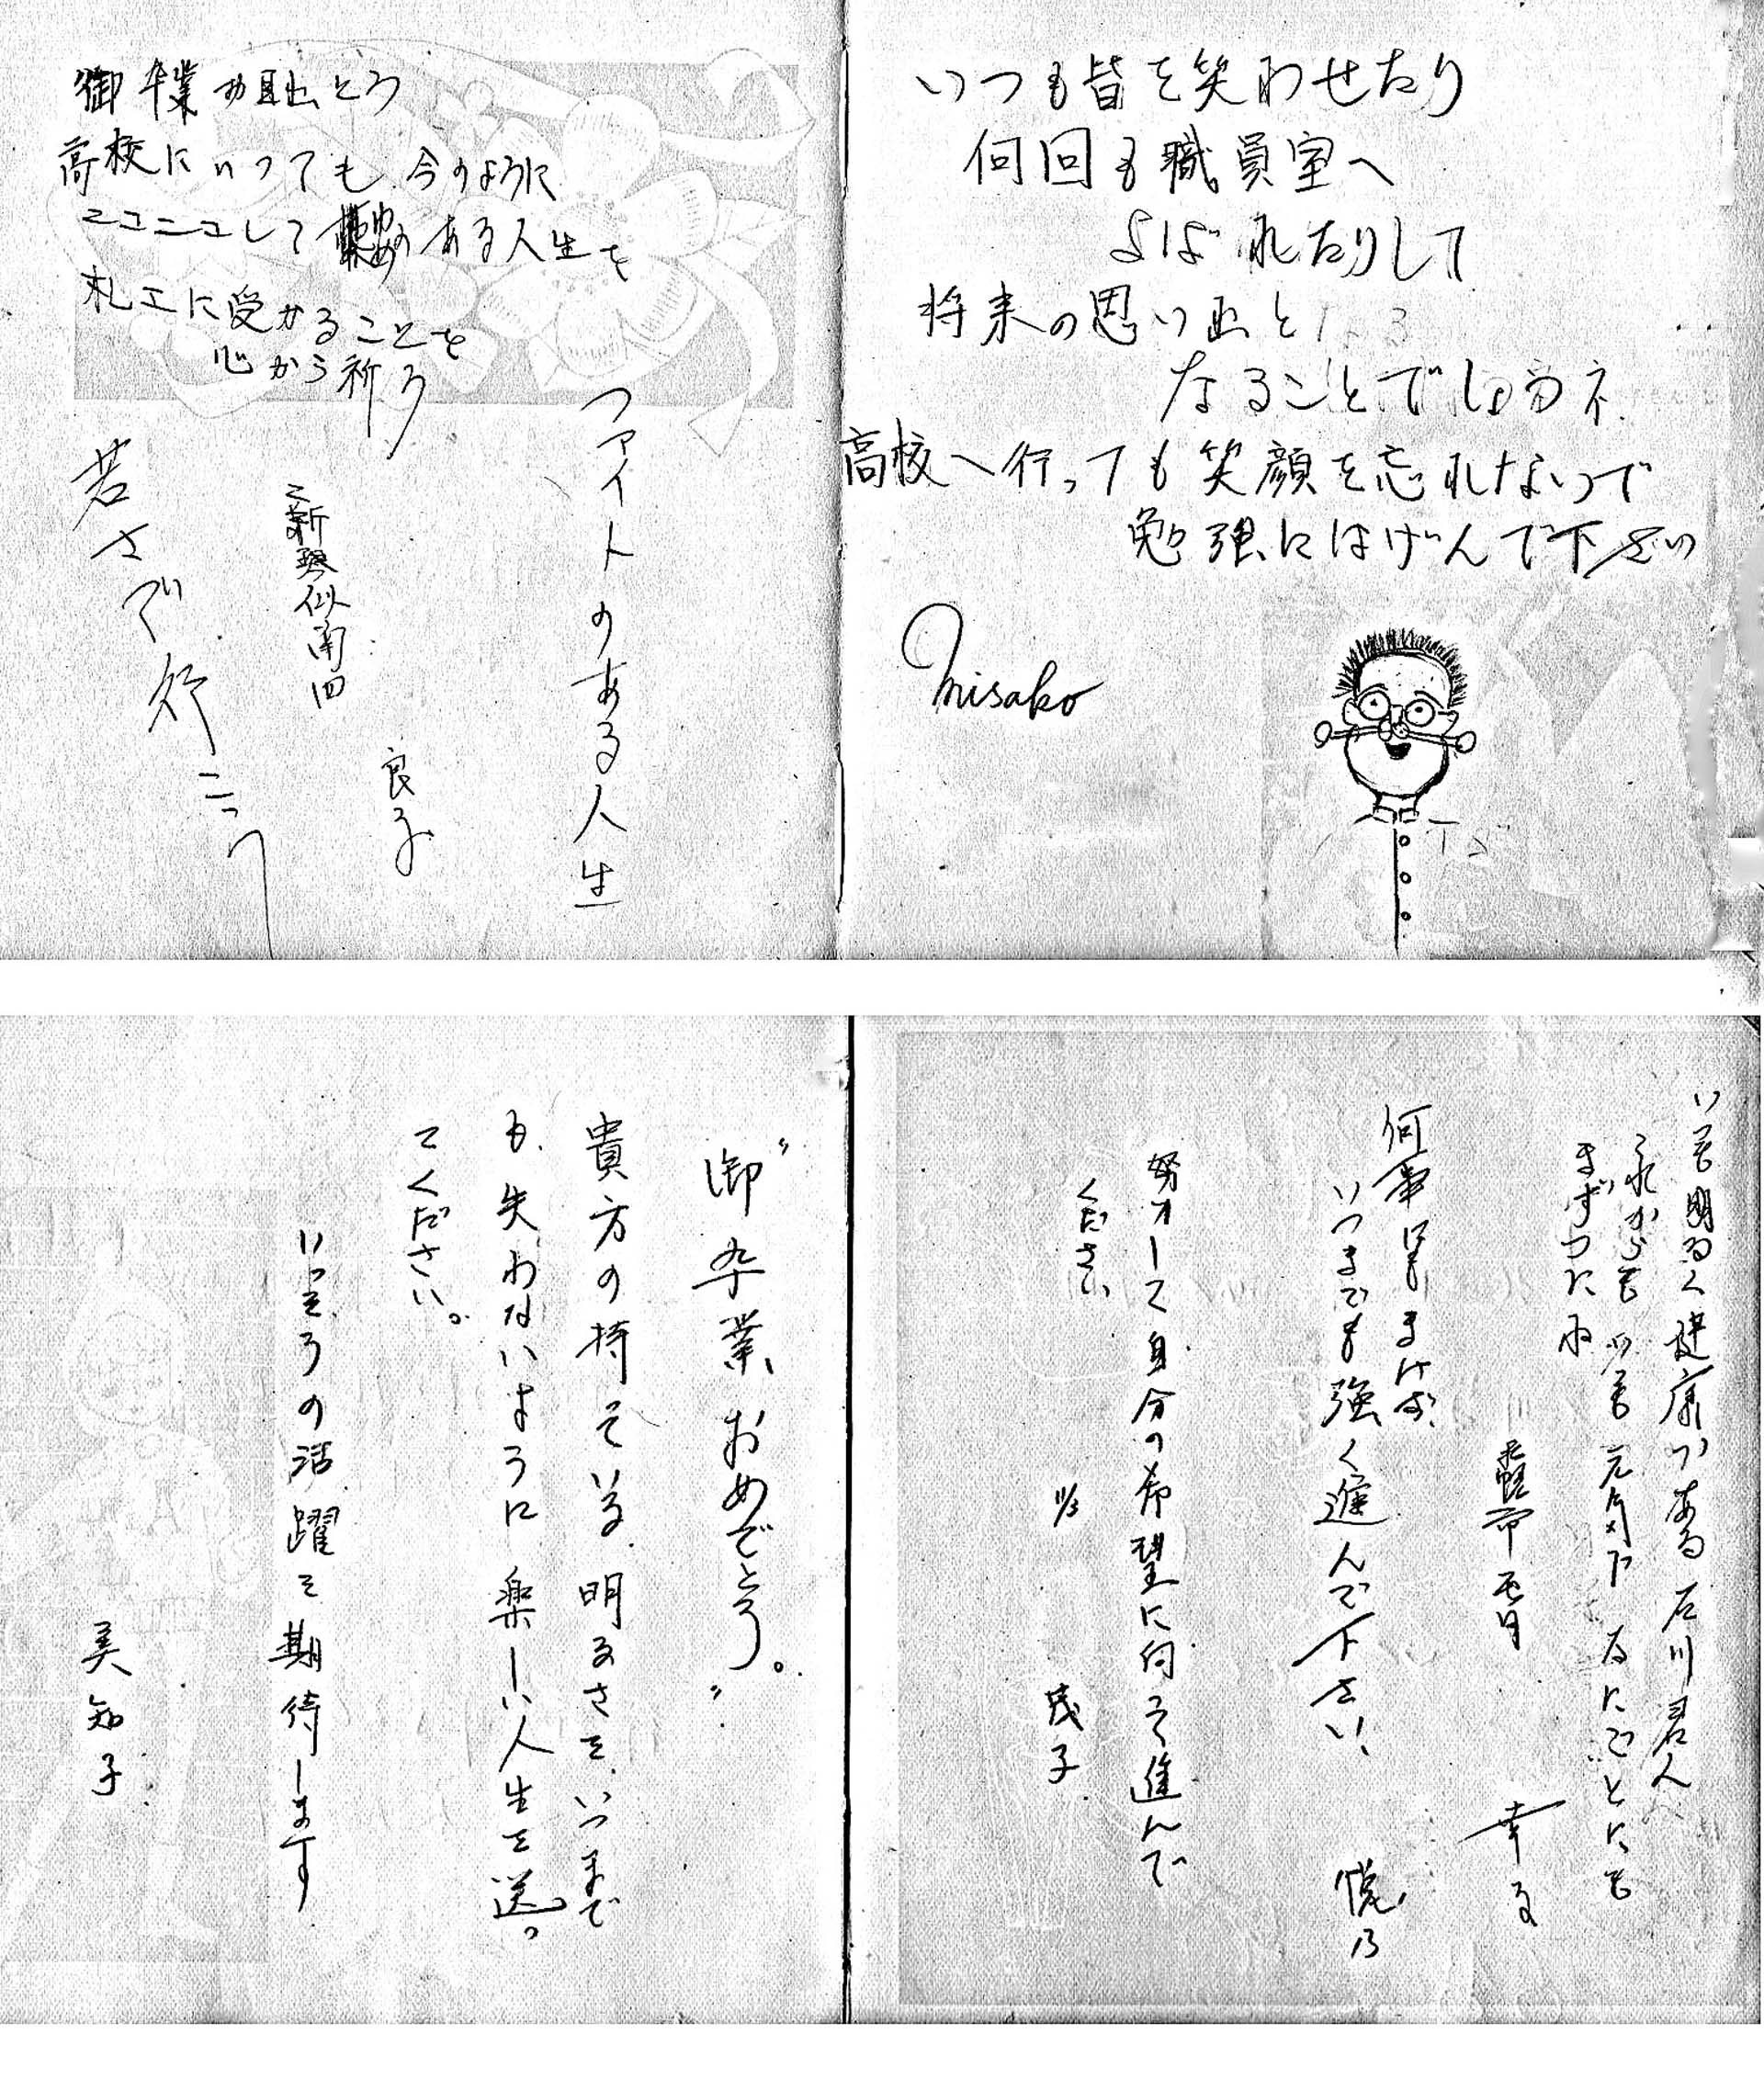 御卒業お目出とう
高校にいっても今のように
ニコニコして夢のある人生を
札工に受かることを
心から祈る
ファイトのある人生
良子
新琴似南四
若さで行こう
いつも皆を笑わせたり
何回も職員室へ
よばれたりして
将来の思い出と
なることでしょうネ
高校へ行っても笑顔を忘れないで
勉強にはげんで下さい
Misako
"御卒業おめでとう。"
貴方の持っている明るさを、いつまで
も、失わないように楽しい人生を送っ
てください。
いっそうの活躍を期待します
美知子
いつも明るく健康つある石川君人
永からもいつも元気で なにごとにも
まずつにね
幸る
何事にもまけず、
いつまでも強く進んで下さい、
悦乃
努力して自分の希望に向って進んで
ください
11/3
茂子